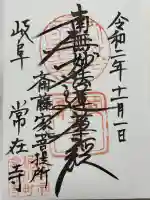 令和二年十一月一日
南無妙法蓮華経
斎藤家菩提所
岐阜 常在寺